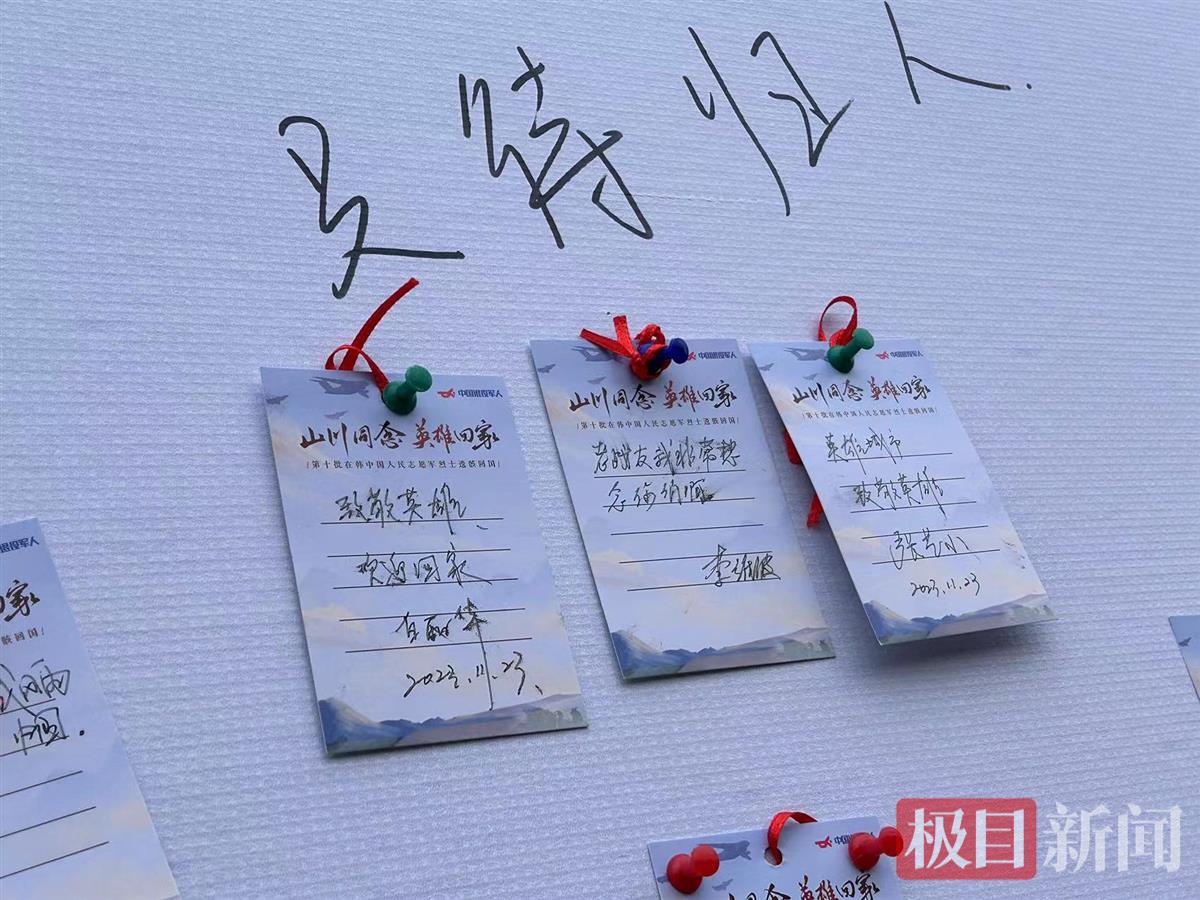 归人.
中国退役军人
山川同念 英雄回家
/第十批在韩中国人民志愿军烈士遗骸回国/
致敬英雄、
欢迎回家
2023.11.23、
中国退役军人
山川同念 英雄回家
/第十批在韩中国人民志愿军烈士遗骸回国/
老战友我非常想
念你们
中国退役军人
山川同念 英雄回家
/第十批在韩中国人民志愿军烈士遗骸回国/
英雄城市
致敬英雄
2023.11.23
退役军人
回家
骸回国/
中国.
中国退役军人
山川同念 英雄回家
极目新闻